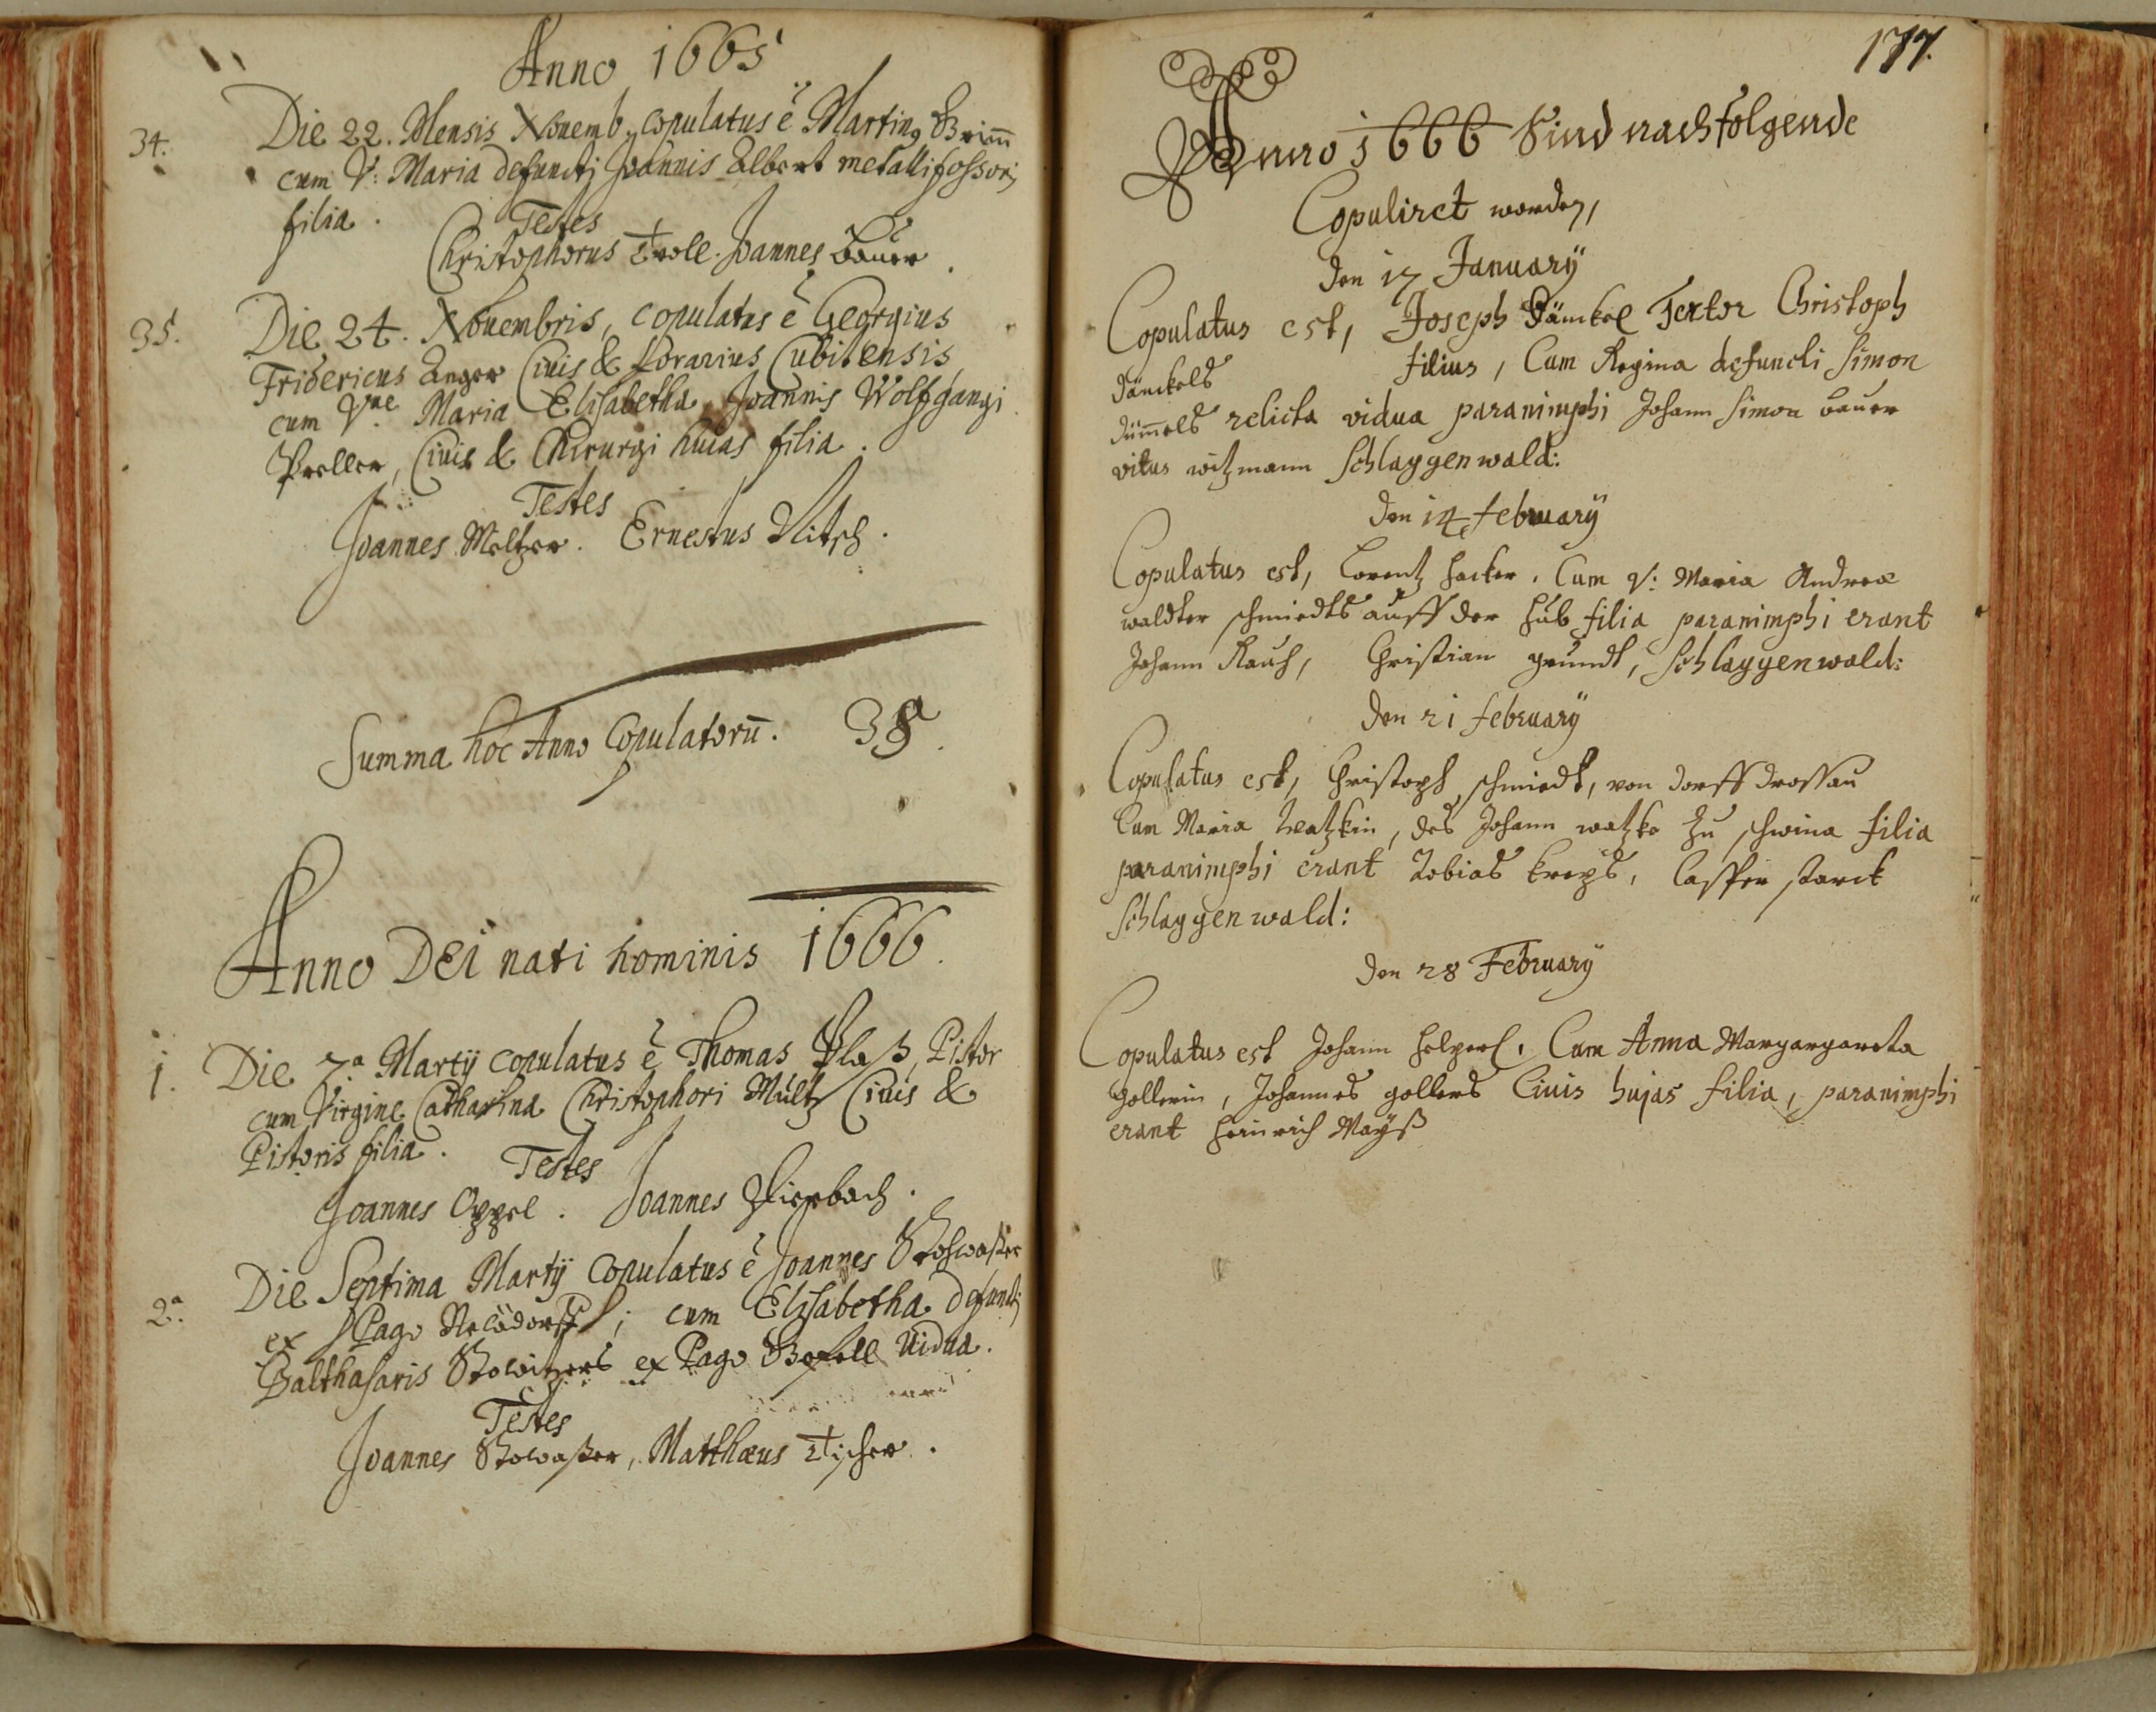 Anno 1665
34.
Die 22. Mensis Novemb. copulatus ē Martin9 Brim̄
cum V: Maria defuncti Joannis Albert metallifossoris
filia.
Testes
Christophorus Troll. Joannes Bauer.
35.
Die 24. Novembris, copulatus ē Georgius
Fridericus Anger Civis & Lorarius Cubitensis
cum V.ne Maria Elisabetha, Joannis Wolfgangi
Preller, Civis & Chirurgi huias filia.
Testes
Joannes Meltzer. Ernestus Nitsch.
Summa hoc Anno Copulatorū.
Anno DEI nati hominis 1666.
1.
Die 7a Martij copulatus ē Thomas Plaß, Pistor
cum Virgine Catharina Christophori Multz Civis &
Pistoris filia.
Testes
Joannes Oppel. Joannes Zierbach.
2a.
Die Septima Martij copulatus ē Joannes
ex Pago; cum Elisabetha defuncti
Balthasaris Stowitzers ex Pago Vidua.
Testes
Joannes Stowaßer, Matthæus Tischer.
177.
Anno 1666 Sind nachfolgende
Copuliret worden,
den 17 January
Copulatus est, Joseph Dänckel Textor Christoph
Dänckels filius, Cum Regina defuncti Simon
Düm̄els relicta vidua paranimphi Johann Simon Bauer
vitus witzmann Schlaggenwald:
den 14 february
Copulatus est, Lorentz Hacker. Cum V: Maria Andreæ
waldter schmiedts auff der Hub filia paranimphi erant
Johann Rauh, Christian grundt, Schlaggenwald:
den 21 february
Copulatus est, Christoph schmiedt, von dorff drossau
Cum Maria watzkin, des Johann watzka zu schwina filia
paranimphi erant Tobias kreps, Casper starck
Schlaggenwald:
den 28 February
Copulatus est Johann Cum Anna Margargareta
gollerin, Johannes gollers Civis hujas filia, paranimphi
erant Heinrich Mayß